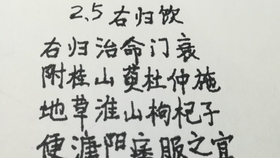 2.5右归饮
右归治命门衰
附桂山萸杜仲施
地草淮山枸杞子
便溏阳痿服之宜